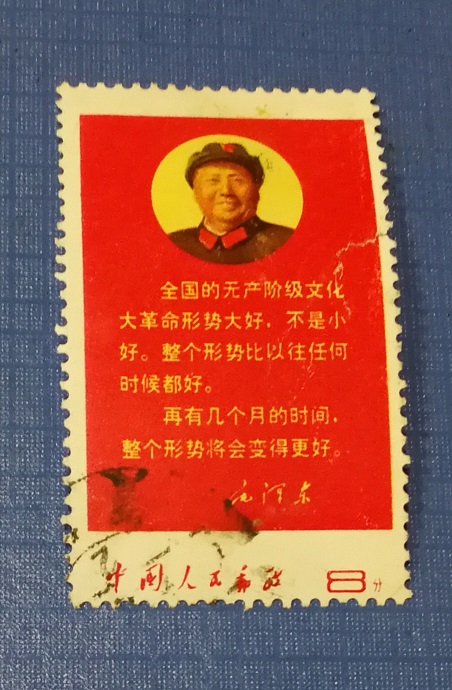 全国的无产阶级文化
大革命形势大好，不是小
好。整个形势比以往任何
时候都好。
再有几个月的时间，
整个形势将会变得更好。
毛泽东
中国人民邮政 8分